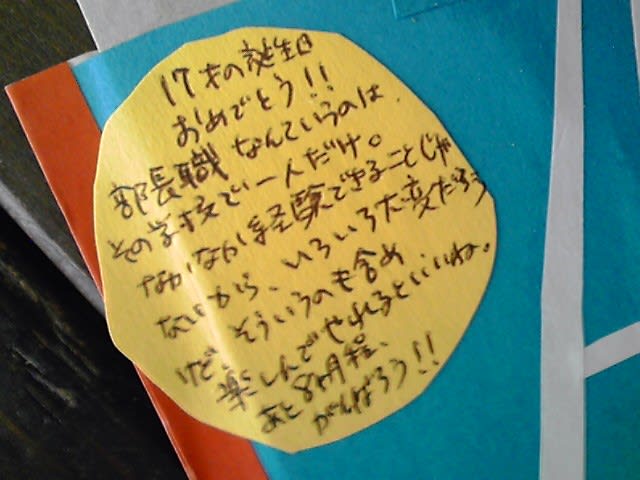 17才の誕生日
おめでとう!!
部長職なんていうのは、
その学校で一人だけ。
なかなか経験できることじゃ
ないから、いろいろ大変だろう
けど そういうのも含め
楽しんでやれるといいね。
あと8ヶ月程、
がんばろう!!